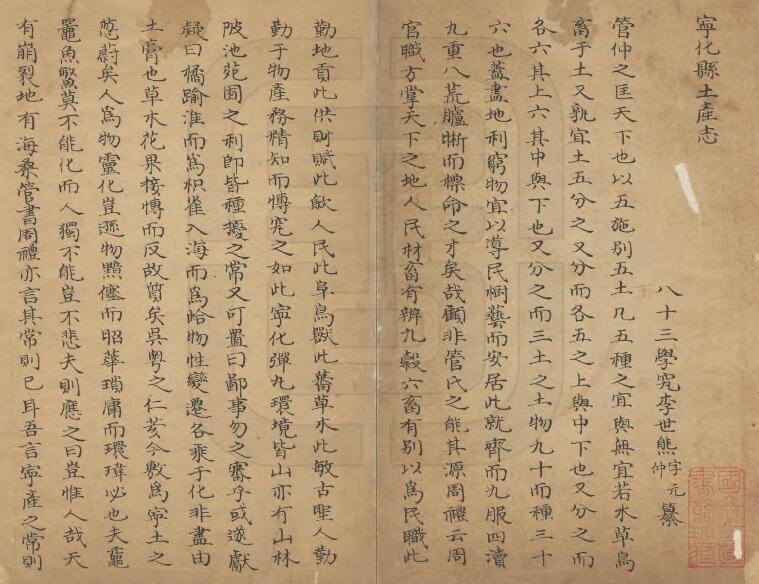 寧化縣土產志
八十三學究李世熊字元仲纂
管仲之匡天下也以五施別五土凡五種之宜與無宜若水草鳥
畜于土又孰宜土五分之又分而各五之上與中下也又分之而
各六其上六其中與下也又分之而三土之土物九十而種三十
六也蓋盡地利窮物宜以導民樹藝而安居此就齊而九服四瀆
九重八荒臚晰而標命之才矣哉顧非管氏之能其源周禮云周
官職方掌天下之地人民材畜有辨九穀六畜有別以為民職此
勤地貢此供則賦此歛人民此阜鳥獸此蕃草木此敏古聖人勤
勤于物產務精知而慱究之如此寧化彈九環境皆山亦有山林
陂池苑囿之利即皆種擾之常又可置曰鄙事勿之審乎或遂獻
疑曰橘踰淮而為枳雀入海而為蛤物性變遷各乘于化非盡由
土膏也草木花果接慱而反故質矣吳粵之仁芸今敷為寧土之
悠蔚矣人為物靈化豈遜物黯僿而昭華瑣庸而環瑋必也夫黿
鼉魚鱉莫不能化而人獨不能豈不悲夫則應之曰豈惟人哉天
有崩裂地有海桑管書周禮亦言其常則已耳吾言寧產之常則